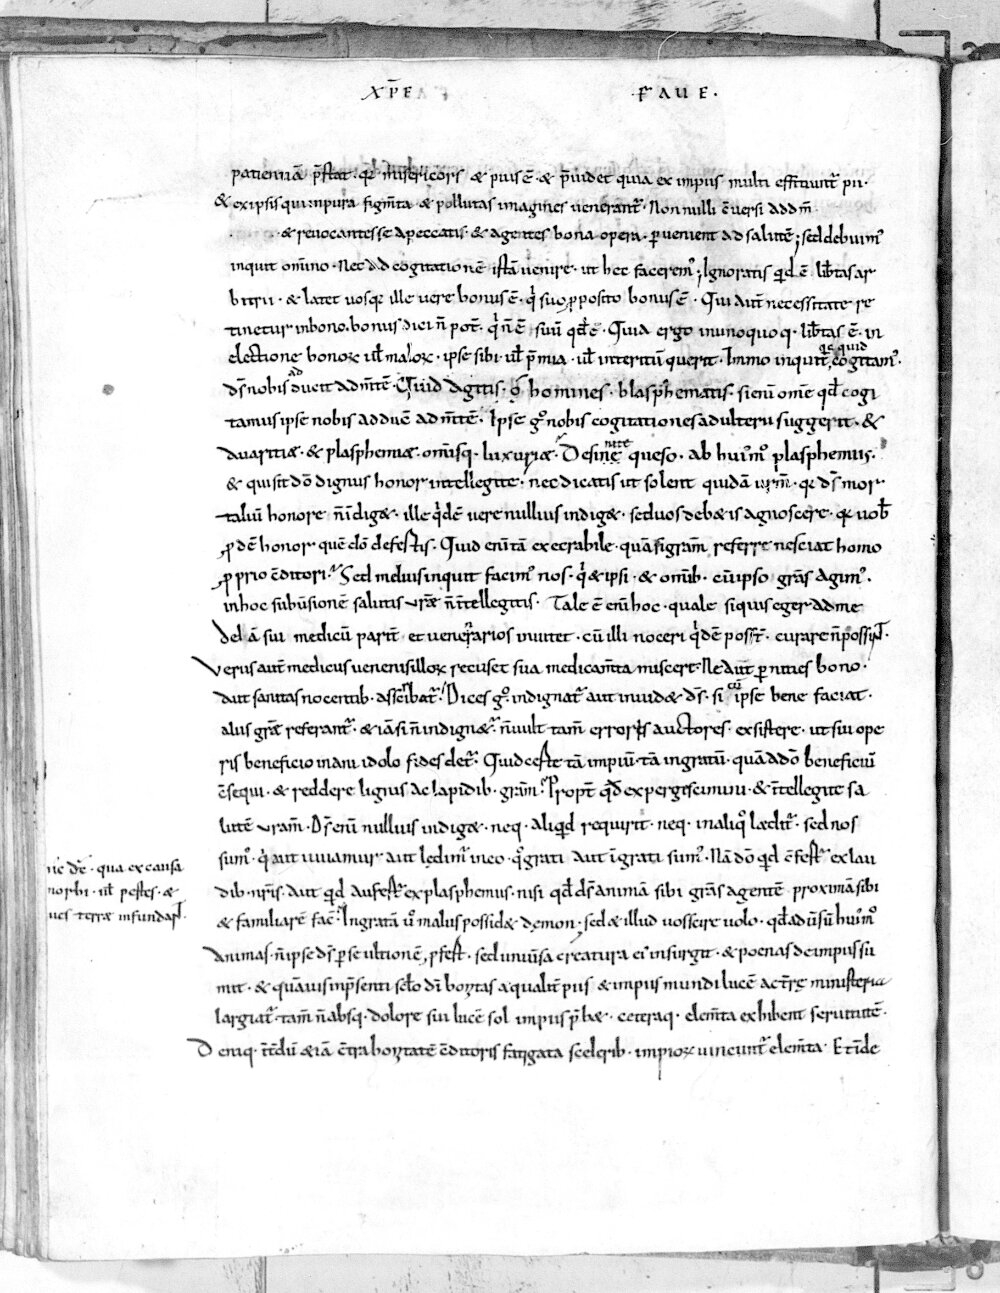 XP̄E FAUE.
patientiā p̄stat. qd̄ misericors & pius ē. & p̄uidet quia ex impiis multi efficiunt̄ pii.
& ex ipsis qui impura figm̄ta & pollutas imagines venerant̄. Non nulli c̄versi ad dm̄
& revocantes se a peccatis. & agentes bona opera. pervenient ad salutē; sed debuim᷒
inquit om̄ino. Nec ad cogitationē istā venire. ut hec facerem᷒; Ignoratis quid ē lib̄tas ar
bitrii. & latet vos qr̄ ille vere bonus ē. qi suo p̄posito bonus ē. Qui aut̄ necessitate re
tinetur in bono. bonus dici n̄ pot̄. qi n̄ ē suū qd̄ ē. Quia ergo in unoquoq. lib̄tas ē. in
electione bonoꝝ ul̄ maloꝝ. ipse sibi ul̄ p̄mia. ul̄ interitū querit. Immo inquit̄ quicquid cogitam᷒.
ds̄ nobis adducit ad m̄tē. Quid agitis. o homines. blasphematis. si eni om̄e qd̄ cogi
tamus ipse nobis adduc̄ ad m̄tē. Ipse g° nobis cogitationes adulterii suggerit. &
avaritiæ. & plasphemiæ. om̄isq. luxuriæ. Desinite queso. ab hui᷒m° plasphemiis.
& qui sit dō dignus honor intellegite. nec dicatis ut solent quidā ur̄m. qr̄ ds̄ mor
taliū honore n̄ indig&. ille qidē vere nullius indig&. sed vos deb&is agnoscere. qr̄ vob̄
p̄dē honor quē dō defertis. Quid eni tā execrabile. quā gr̄am referre nesciat homo
p̄prio c̄ditori. Sed melius inquit facim᷒ nos. qi & ipsi. & om̄ib. cū ipso gr̄as agim᷒.
in hoc subūsionē salutis vr̄æ n̄ īntellegitis. Tale ē eni hoc. quale si quis eger ad me
delā sui medicū parit̄ et venerarios invitet. cū illi noceri qidē poss̄t. curare n̄ possit̄.
verus aut̄ medicus venenis illoꝝ recuset sua medicam̄ta miscere. Ne aut̄ pernities bono.
aut sanitas nocentib. asscribat̄. Dices g° indignat̄ aut invid& ds̄. si cū ipse bene faciat.
aliis gr̄æ referant̄. & iā si n̄ indign&. n̄ vult tam̄ erroris auctores. exsistere. ut sui ope
ris beneficio inani idolo fides det̄. Quid est tā impiū. tā ingratū. quā a dō beneficiū
c̄sequi. & reddere lignis ac lapidib. gram̄. Propt̄ qd̄ expergiscimini. & īntellegite sa
lutē vr̄am. Ds̄ eni nullius indig&. neq. aliquid requirit. neq. in aliq° lædit̄. sed nos
sum᷒. qi aut iuvamur aut ledim᷒ in eo. q° grati aut ingrati sum᷒. Nā dō quid c̄fert̄ ex lau
dib. nr̄is. aut quid aufert̄ ex plasphemiis. nisi qd̄ ds̄ animā sibi gr̄as agentē proximā sibi
& familiarē fac̄. Ingratā u° malus possid& demon. sed & illud vos scire volo. qd̄ adūsū hui᷒m°
animas. n̄ ipse ds̄ per se ultionē p̄fert. sed univsa creatura ei insurgit. & poenas de impiis su
mit. & quāvis in p̄senti scl̄o dī bo&tas æqualit̄ piis & impiis mundi lucē ac terre ministeria
largiat̄. tam̄ n̄ absq. dolore sui lucē sol impiis p̄b&. ceteraq. elem̄ta exhibent servitutē.
Deniq. t̄tdū & iā c̄tra bonitatē c̄ditoris fatigata scelerib. impioꝝ vincunt̄ elem̄ta. Et īde
dē. qua ex causa
morbi. ul̄ pestes. &
terræ infundat̄.